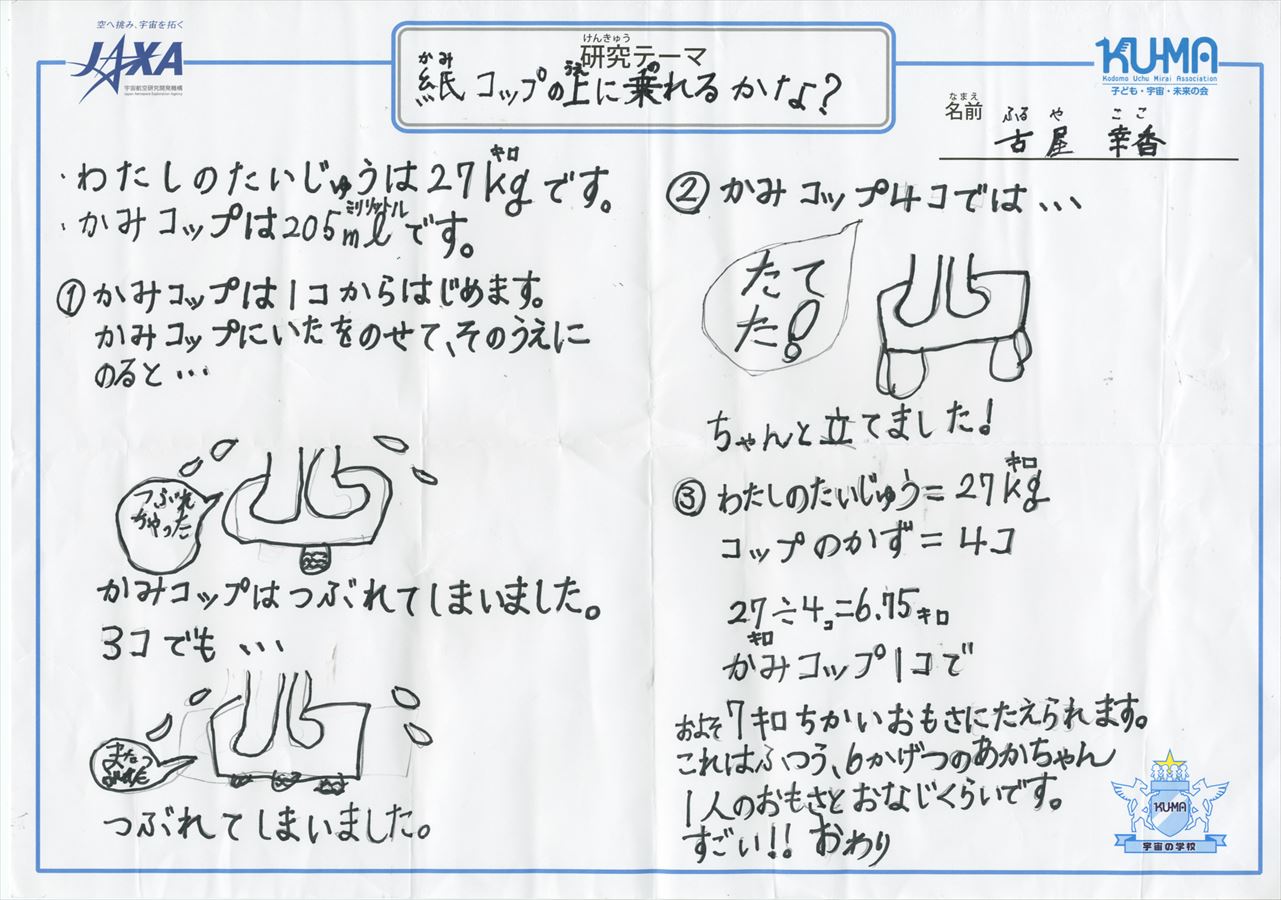 空へ挑み、宇宙を拓く
JAXA
宇宙航空研究開発機構
Japan Aerospace Exploration Agency
けんきゅう
研究テーマ
かみ うえ の
紙コップの上に乗れるかなぁ?
KU-MA
Kodomo Uchu Mirai Association
子ども・宇宙・未来の会
なまえ
名前
ふる や ここ
古屋 幸香
・わたしのたいじゅうは27kgです。
キロ
・かみコップは205mlです。
ミリリットル
①かみコップは1コからはじめます。
かみコップにいたをのせて、そのうえに
のると…
つぶれ
ちゃった
かみコップはつぶれてしまいました。
3コでも…
またつ
つぶれてしまいました。
②かみコップ4コでは…
たて
た!
ちゃんと立てました!
③わたしのたいじゅう=27kg
キロ
コップのかず=4コ
27÷4=6.75キロ
キロ コ
かみコップ1コで
およそ7キロちかいおもさにたえられます。
これはふつう、6かげつのあかちゃん
1人のおもさとおなじくらいです。
すごい!! おわり
KUMA
宇宙の学校